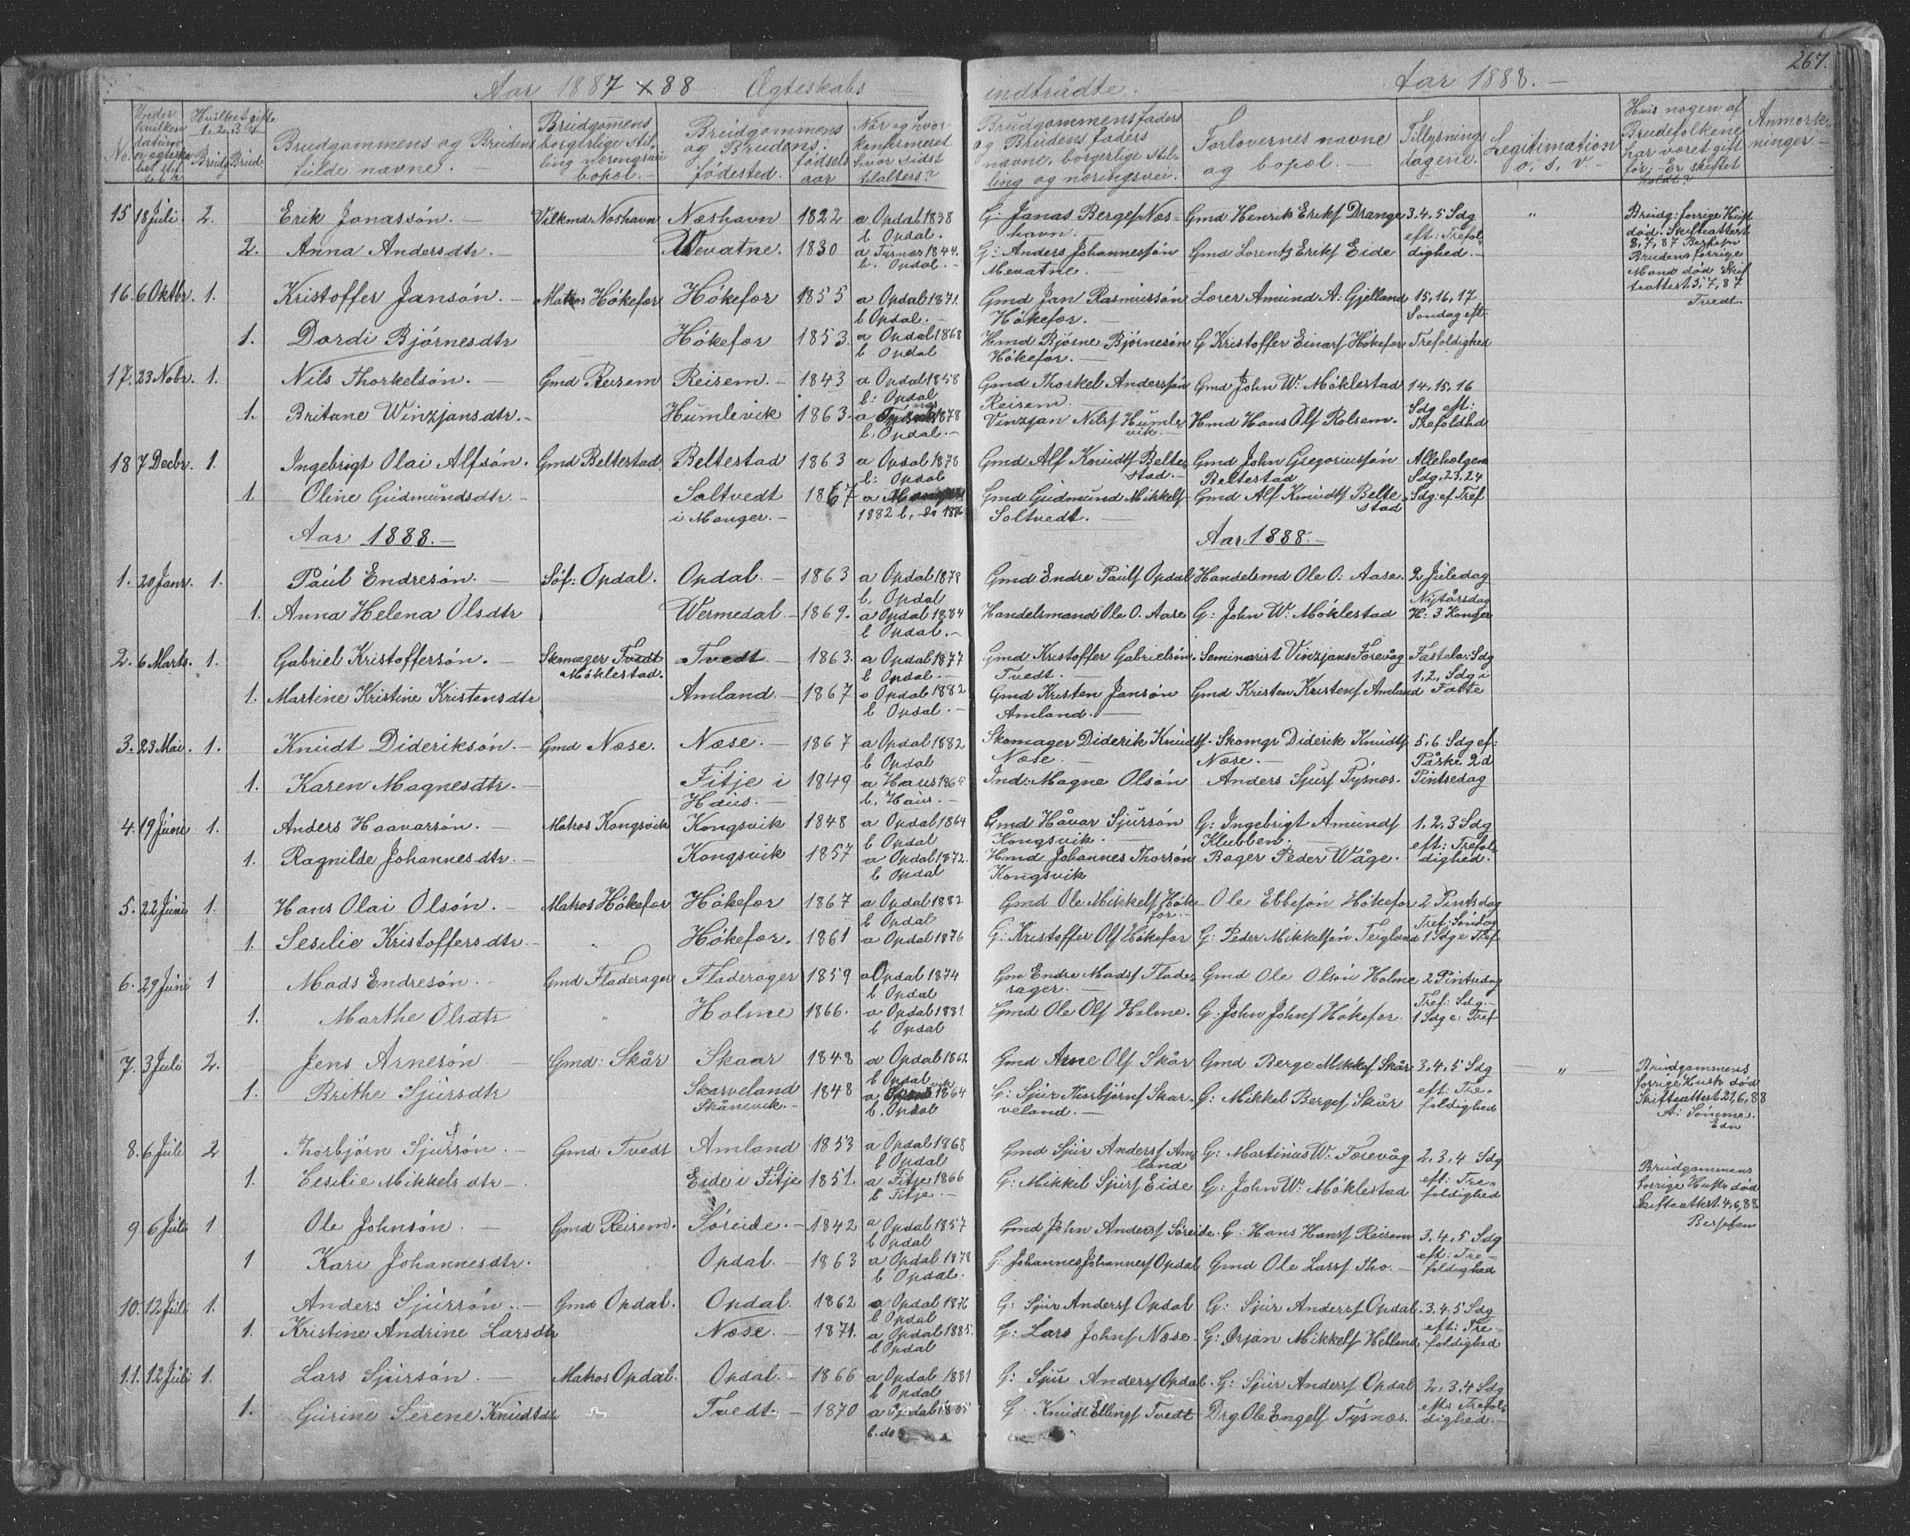 Aar 1887 x 88 Ægteskabs indtrådte. Aar 1888.- 267.
No. Under hvilken datum er ægteskabet stiftet? Hvilket gifte 1. 2. 3. 4. Brudg Brud Brudgommens og Brudens fulde navne. Brudgomens borgerlige Stilling næringsvei bopæl. Brudgommens og Brudens fødested. fødsels aar Når og hvor konfirmeret hvor sidst tilalters?
Brudgommens faders og Brudens faders navne, borgerlige stilling og næringsvei. Forlovernes navne og bopæl. Tillysnings dagene. Legitimation o. s. v. Hvis nogen af Brudefolkene har været gift før. Er skiftet holdt? Anmærkninger
15 18 Juli. 2. Erik Jonassøn. Vilkmd Noshavn Næshavn 1822 a Opdal 1838 b Opdal. G: Jonas Bergesf Næshavn. Gmd Henrik Eriksf Drange 3. 4. 5 Sdg eft: Trefoldighed. " Brudg: forrige Hust død. Skifteattest 8, 7, 87
2. Anna Andersdtr. Mevatne. 1830 a Tysnæs 1844. b. Opdal. G: Anders Johannessøn Mevatne. Gmd Lorentz Eriksf Eide Brudens forrige Mand død Skifteattest 5, 7, 87 Tvedt
16. 6 Oktbr. 1. Kristoffer Jansøn. Matros Høkefor Høkefor 1855 a Opdal 1871. b Opdal. Gmd Jan Rasmussøn Høkefor. Lærer Amund A: Gjelland 15, 16, 17 Søndag eft Trefoldighed
1. Dordi Bjørnesdtr Høkefor 1853. a Opdal 1868 b Opdal Hmd Bjørne Bjørnesøn Høkefor. G Kristoffer Einarsf Høkefor
17. 23 Nobr. 1. Nils Thorkelsøn. Gmd Reisem Reisem. 1843 a Opdal 1858 b: Opdal Gmd Thorkel Anderssøn Reisem Gmd John W: Møklestad 14. 15. 16 Sdg eft: Trefoldhd
1. Britane Winzjansdtr. Humlevik 1863. a Tysnæs 1878 b. Opdal. Vinzjan Nilsf Humlevik. Hmd Hans Olsf Rolsem.
18 7 Decbr. 1. Ingebrigt Olai Alfsøn. Gmd Beltestad. Beltestad 1863 a Opdal 1878 b: Opdal Gmd Alf Knudsf Beltestad. Gmd John Gregoriussøn Beltestad Allehelgen Sdg. 23, 24 Sdg: ef. Tref
1. Oline Gudmundsdtr Soltvedt i Manger. 1867 a Manger 1882 b. do 1886 Gmd Gudmund Mikkelsf Soltvedt. Gmd Alf Knudsf Beltestad
Aar 1888. Aar 1888.
1. 20 Janr. 1. Paul Endresøn. Søf: Opdal. Opdal. 1863 a Opdal 1878 b. Opdal Gmd Endre Paulsf Opdal Handelsmd Ole O. Aase. 2 Juledag Nytårsdag H: 3 Konger
1. Anna Helena Olsdtr Wermedal 1869. a Opdal 1884 b Opdal. Handelsmand Ole O. Aase G: John W: Møklestad
2. 6 Marts. 1. Gabriel Kristoffersøn. Skomager Tvedt Møklestad. Tvedt 1863. a Opdal 1877 b Opdal. Gmd Kristoffer Gabrielsøn Tvedt. Seminarist Vinzjans Forevåg Fastela: Sdg 1, 2, Sdg i Faste
1. Martine Kristine Kristensdtr Amland. 1867 a Opdal 1882 b Opdal. Gmd Kristen Jansøn Amland. Gmd Kristen Kristensf Amland
3. 23 Mai. 1. Knudt Dideriksøn. Gmd Næse. Næse. 1867 a Opdal 1882 b Opdal Skomager Diderik Knudtsf. Næse. Skomgr Diderik Knudtsf Næse. 5. 6 Sdg ef: Påske 2d Pintsedag
1. Karen Magnesdtr. Fitje i Haus. 1849 a Haus b. Haus. Ind: Magne Olsøn Anders Sjursf Tysnæs.
4. 19 Juni 1. Anders Haavarsøn. Matros Kongsvik Kongsvik 1848 a Opdal 1864 b Opdal Gmd Håvar Sjursøn Kongsvik. G: Ingebrigt Amundsf Klubben. 1. 2. 3 Sdg eft: Trefoldighed.
1. Ragnilde Johannesdtr. Kongsvik 1857 a Opdal 1872. b Opdal Hmd Johannes Thorsøn Kongsvik Bager Peder Wåge.
5. 22 Juni 1. Hans Olai Olsøn. Matros Høkefor Høkefor 1867 a Opdal 1882 b Opdal Gmd Ole Mikkelsf Høkefor. Ole Ebbesøn Høkefor 2 Pintsdag Tref: Søndag 1 Sdg e Tref
1. Sesilie Kristoffersdtr. " Høkefor. 1861 a Opdal 1876 G: Kristoffer Olsf Høkefor G: Peder Mikkelsøn Teigland
6. 29 Juni 1 Mads Endresøn. Gmd Fladerager Fladerager 1859 a Opdal 1874 b Opdal Gm Endre Madsf Fladerager. Gmd Ole Olsøn Holme 2 Pintsdag Tref: Sdg. 1 Sdg e: Tref
1. Marthe Olsdtr " Holme 1866. a Opdal 1881 b Opdal Gmd Ole Olsf Holme. G. John Johnsf Høkefor.
7. 3 Juli 2. Jens Arnesøn Gmd: Skår Skaar 1848 a Opdal 1862 b Opdal Gmd Arne Olsf Skår Gmd Berge Mikkelsf Skår 3. 4. 5 Sdg eft: Trefoldighed " Brudgommens forrige Hustr død Skifteattest 21, 6, 88 A: Sømme. Edn
1. Brithe Sjursdtr Skarveland Skånevik. 1848 1864 b. Opdal G: Sjur Thorbjørnsf Skarveland. G: Mikkel Bergesf Skår
8. 6 Juli 2 Thorbjørn Sjursøn. Gmd Tvedt Amland 1853 a Opdal 1868 b Opdal Gmd Sjur Andersf Amland G: Martinus W. Forevåg 2. 3. 4 Sdg eft: Trefoldighed Brudgommens forrige Hustr død Skifteattest 4, 6, 88
1. Cesilie Mikkelsdtr Eide i Fitje 1851. a Fitje 1866 b Fitje. G: Mikkel Sjursf Eide G: John W: Møklestad
9 6 Juli 1 Ole Johnsøn. Gmd Reisem. Søreide. 1842 a Opdal 1857 b Opdal Gmd John Andersf Søreide. G: Hans Hansf Reisem 3. 4. 5 Sdg eft: Trefoldighed
1 Kari Johannesdtr. Opdal 1863 a Opdal 1878 b Opdal. G: Johannes Johannesf Opdal Gmd Ole Larsf Tho.
10. 12 Juli 1. Anders Sjursøn. Gmd Opdal. Opdal. 1862 a Opdal 1876 b Opdal G: Sjur Andersf Opdal G: Sjur Andersf Opdal. 3. 4. 5 Sdg eft: Trefoldighed
1. Kristine Andrine Larsdtr Næse. 1871. a Opdal 1885. b Opdal G: Lars Johnsf Næse. G: Ørjan Mikkelsf Helland
11. 12 Juli 1. Lars Sjursøn. Matros Opdal. Opdal. 1866 a Opdal 1881 b Opdal G: Sjur Andersf Opdal. G: Sjur Andersf Opdal 2. 3. 4 Sdg eft: Trefoldighed.
1. Gurine Serene Knudtdtr Tvedt. 1870 a Opdal 1885 b. do G Knudt Ellingsf Tvedt Drg Ole Engelsf Tysnæs.